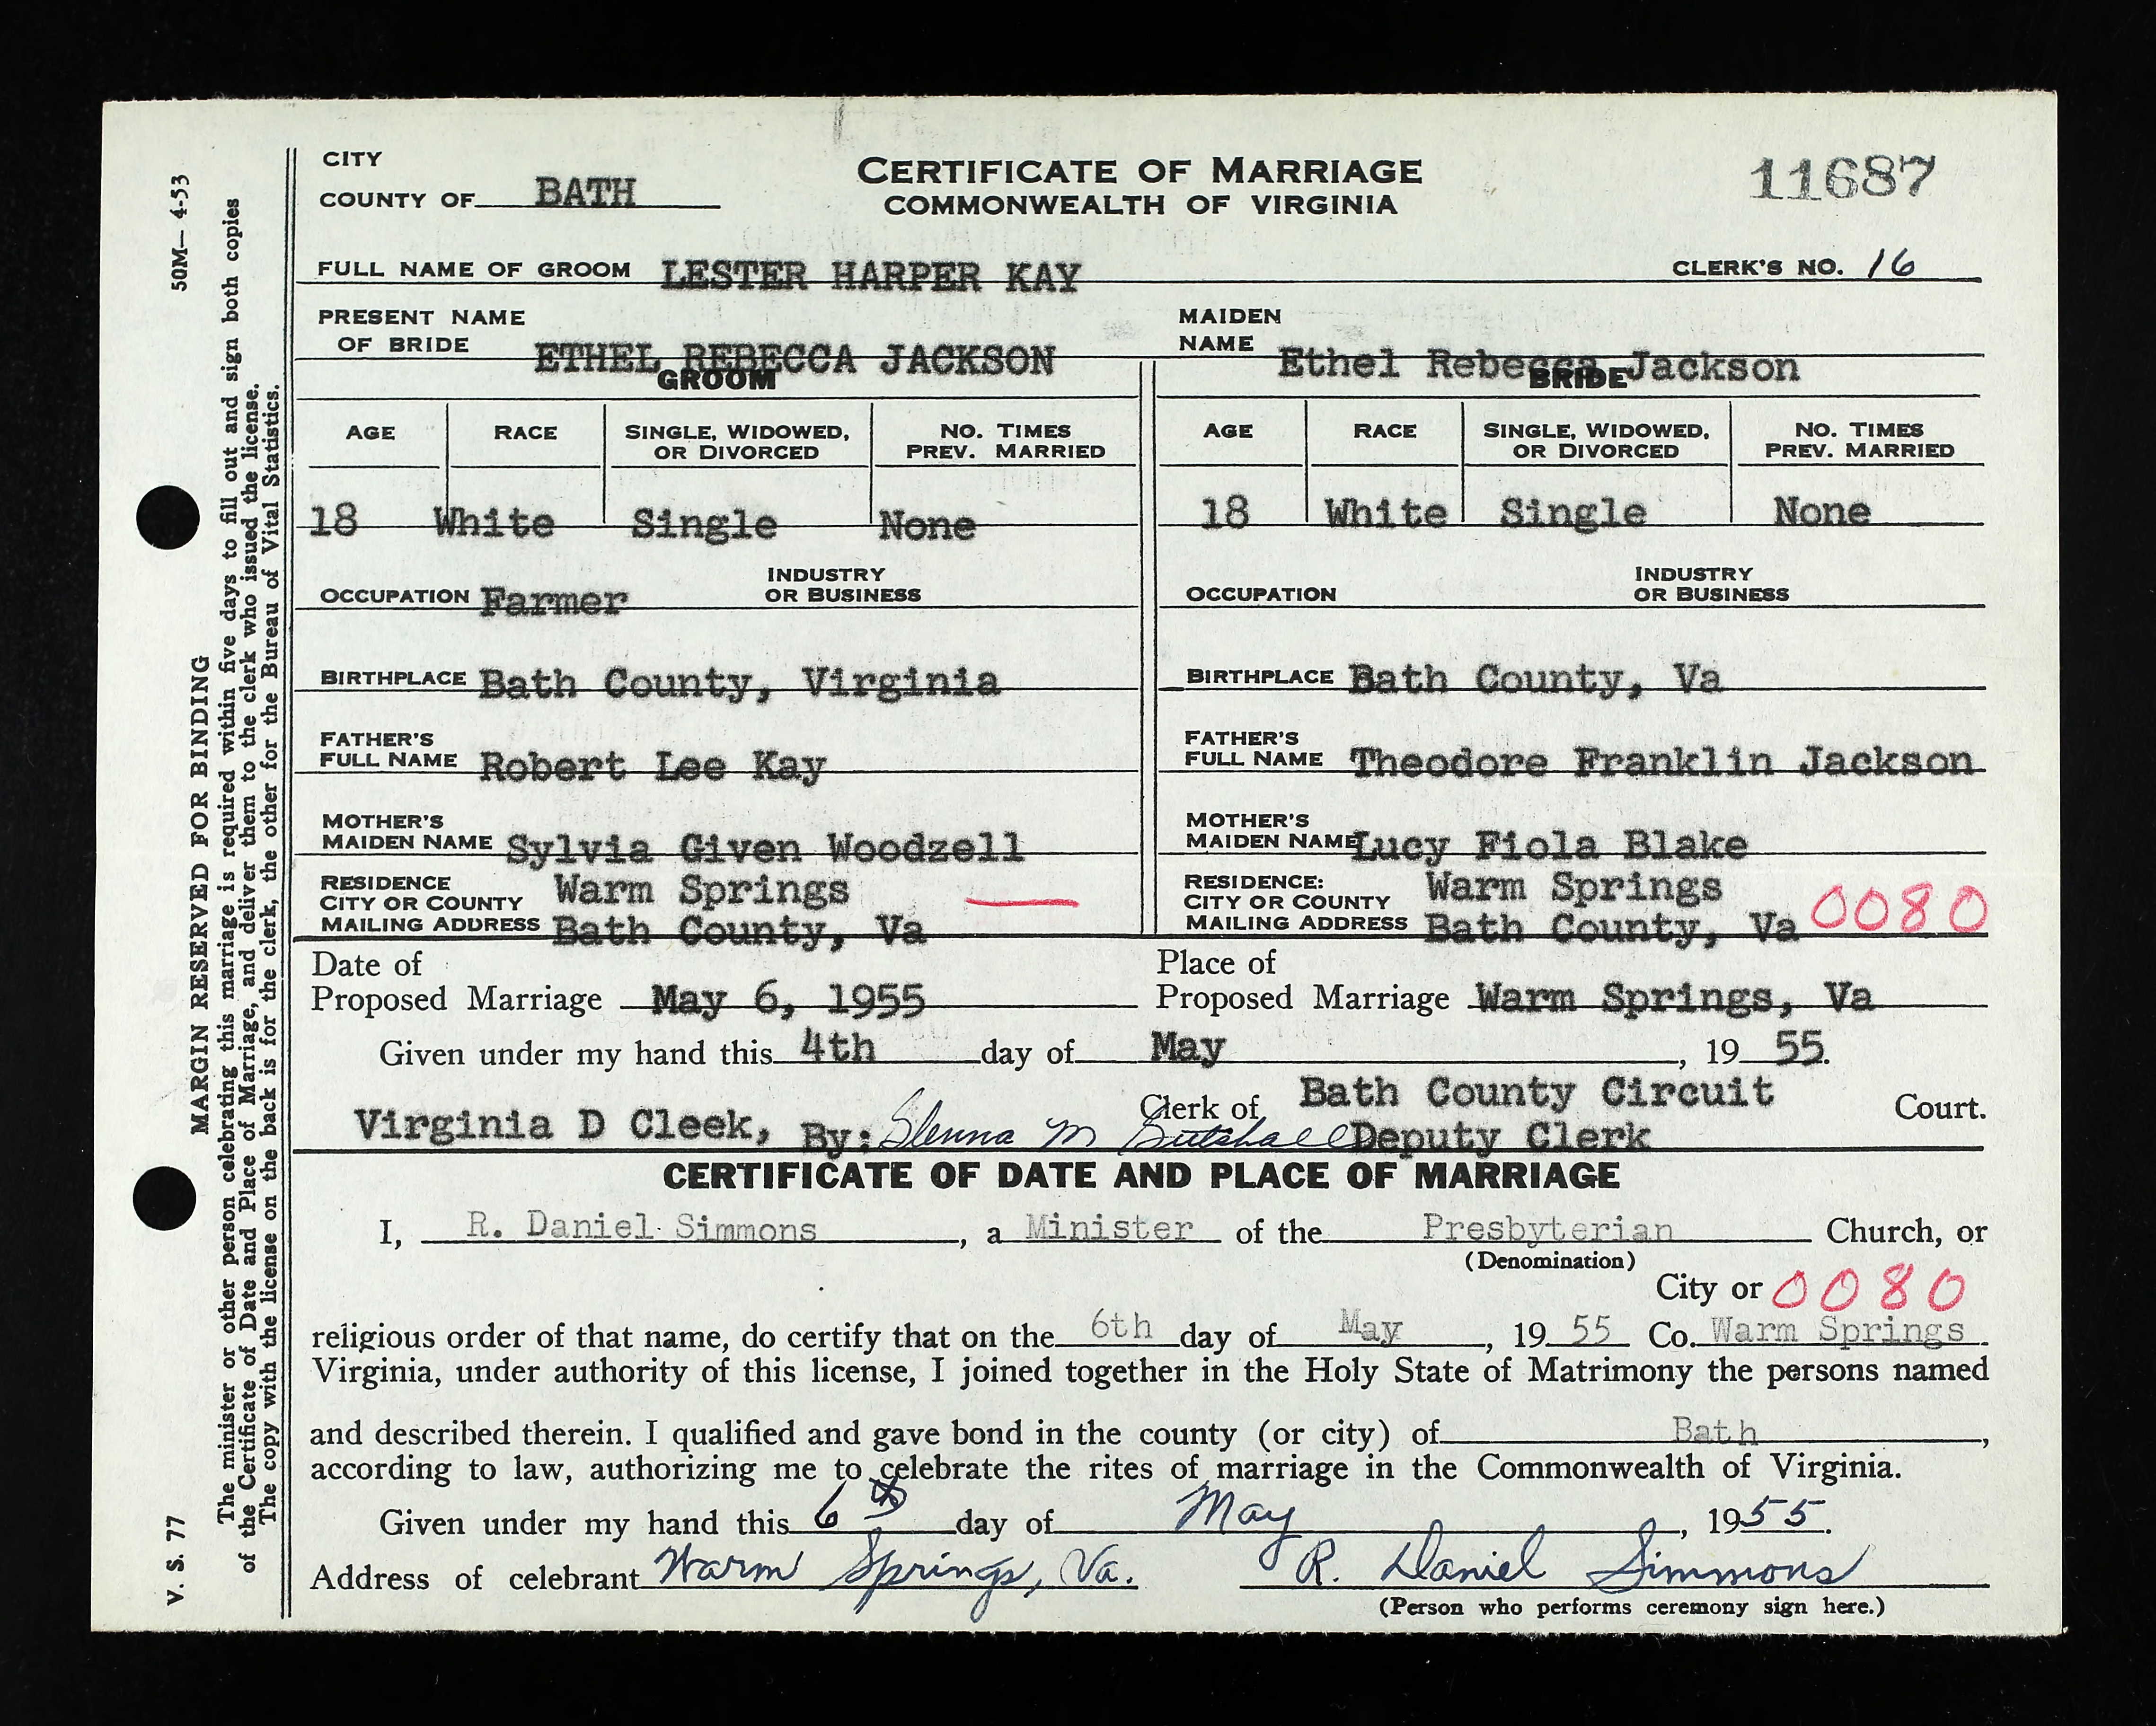 CITY
COUNTY OF BATH
CERTIFICATE OF MARRIAGE
COMMONWEALTH OF VIRGINIA
11687
FULL NAME OF GROOM LESTER HARPER KAY
CLERK'S NO. 16
PRESENT NAME
OF BRIDE ETHEL REBECCA JACKSON
MAIDEN
NAME Ethel Rebecca Jackson
GROOM
BRIDE
AGE RACE SINGLE, WIDOWED, OR DIVORCED NO. TIMES PREV. MARRIED
AGE RACE SINGLE, WIDOWED, OR DIVORCED NO. TIMES PREV. MARRIED
18 White Single None
18 White Single None
OCCUPATION Farmer INDUSTRY OR BUSINESS
OCCUPATION INDUSTRY OR BUSINESS
BIRTHPLACE Bath County, Virginia
BIRTHPLACE Bath County, Va
FATHER'S
FULL NAME Robert Lee Kay
FATHER'S
FULL NAME Theodore Franklin Jackson
MOTHER'S
MAIDEN NAME Sylvia Given Woodzell
MOTHER'S
MAIDEN NAME Lucy Fiola Blake
RESIDENCE
CITY OR COUNTY Warm Springs
MAILING ADDRESS Bath County, Va
RESIDENCE:
CITY OR COUNTY Warm Springs
MAILING ADDRESS Bath County, Va 0080
Date of
Proposed Marriage May 6, 1955
Place of
Proposed Marriage Warm Springs, Va
Given under my hand this 4th day of May, 19 55.
Clerk of Bath County Circuit Court.
Virginia D Cleek, By: Glenna M Deputy Clerk
CERTIFICATE OF DATE AND PLACE OF MARRIAGE
I, R. Daniel Simmons, a Minister of the Presbyterian Church, or
(Denomination)
City or 0080
religious order of that name, do certify that on the 6th day of May, 19 55 Co. Warm Springs.
Virginia, under authority of this license, I joined together in the Holy State of Matrimony the persons named
and described therein. I qualified and gave bond in the county (or city) of Bath,
according to law, authorizing me to celebrate the rites of marriage in the Commonwealth of Virginia.
Given under my hand this 6th day of May, 1955.
Address of celebrant Warm Springs, Va. R. Daniel Simmons
(Person who performs ceremony sign here.)
V. S. 77
50M—4-53
MARGIN RESERVED FOR BINDING
The minister or other person celebrating this marriage is required within five days to fill out and sign both copies
of the Certificate of Date and Place of Marriage, and deliver them to the clerk who issued the license.
The copy with the license on the back is for the clerk, the other for the Bureau of Vital Statistics.